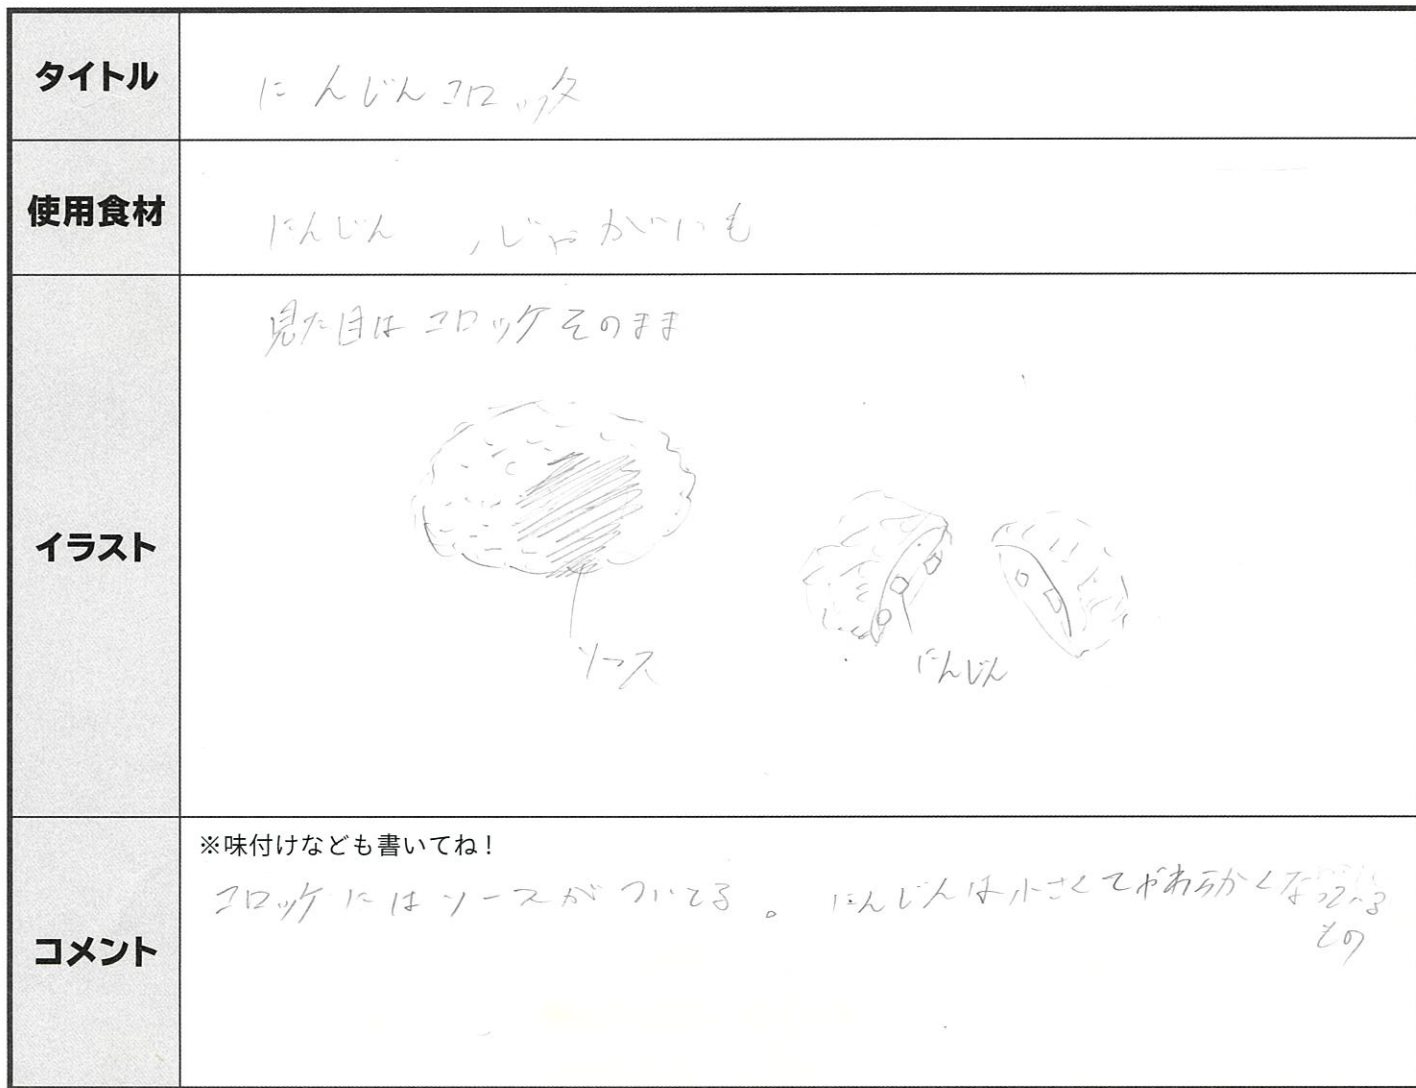 タイトル
にんじんコロッケ
使用食材
にんじん 、じゃがいも
イラスト
見た目はコロッケそのまま
ソース
にんじん
※味付けなども書いてね!
コロッケにはソースがついてる。 にんじんは小さくてやわらかくなっている
もの
コメント